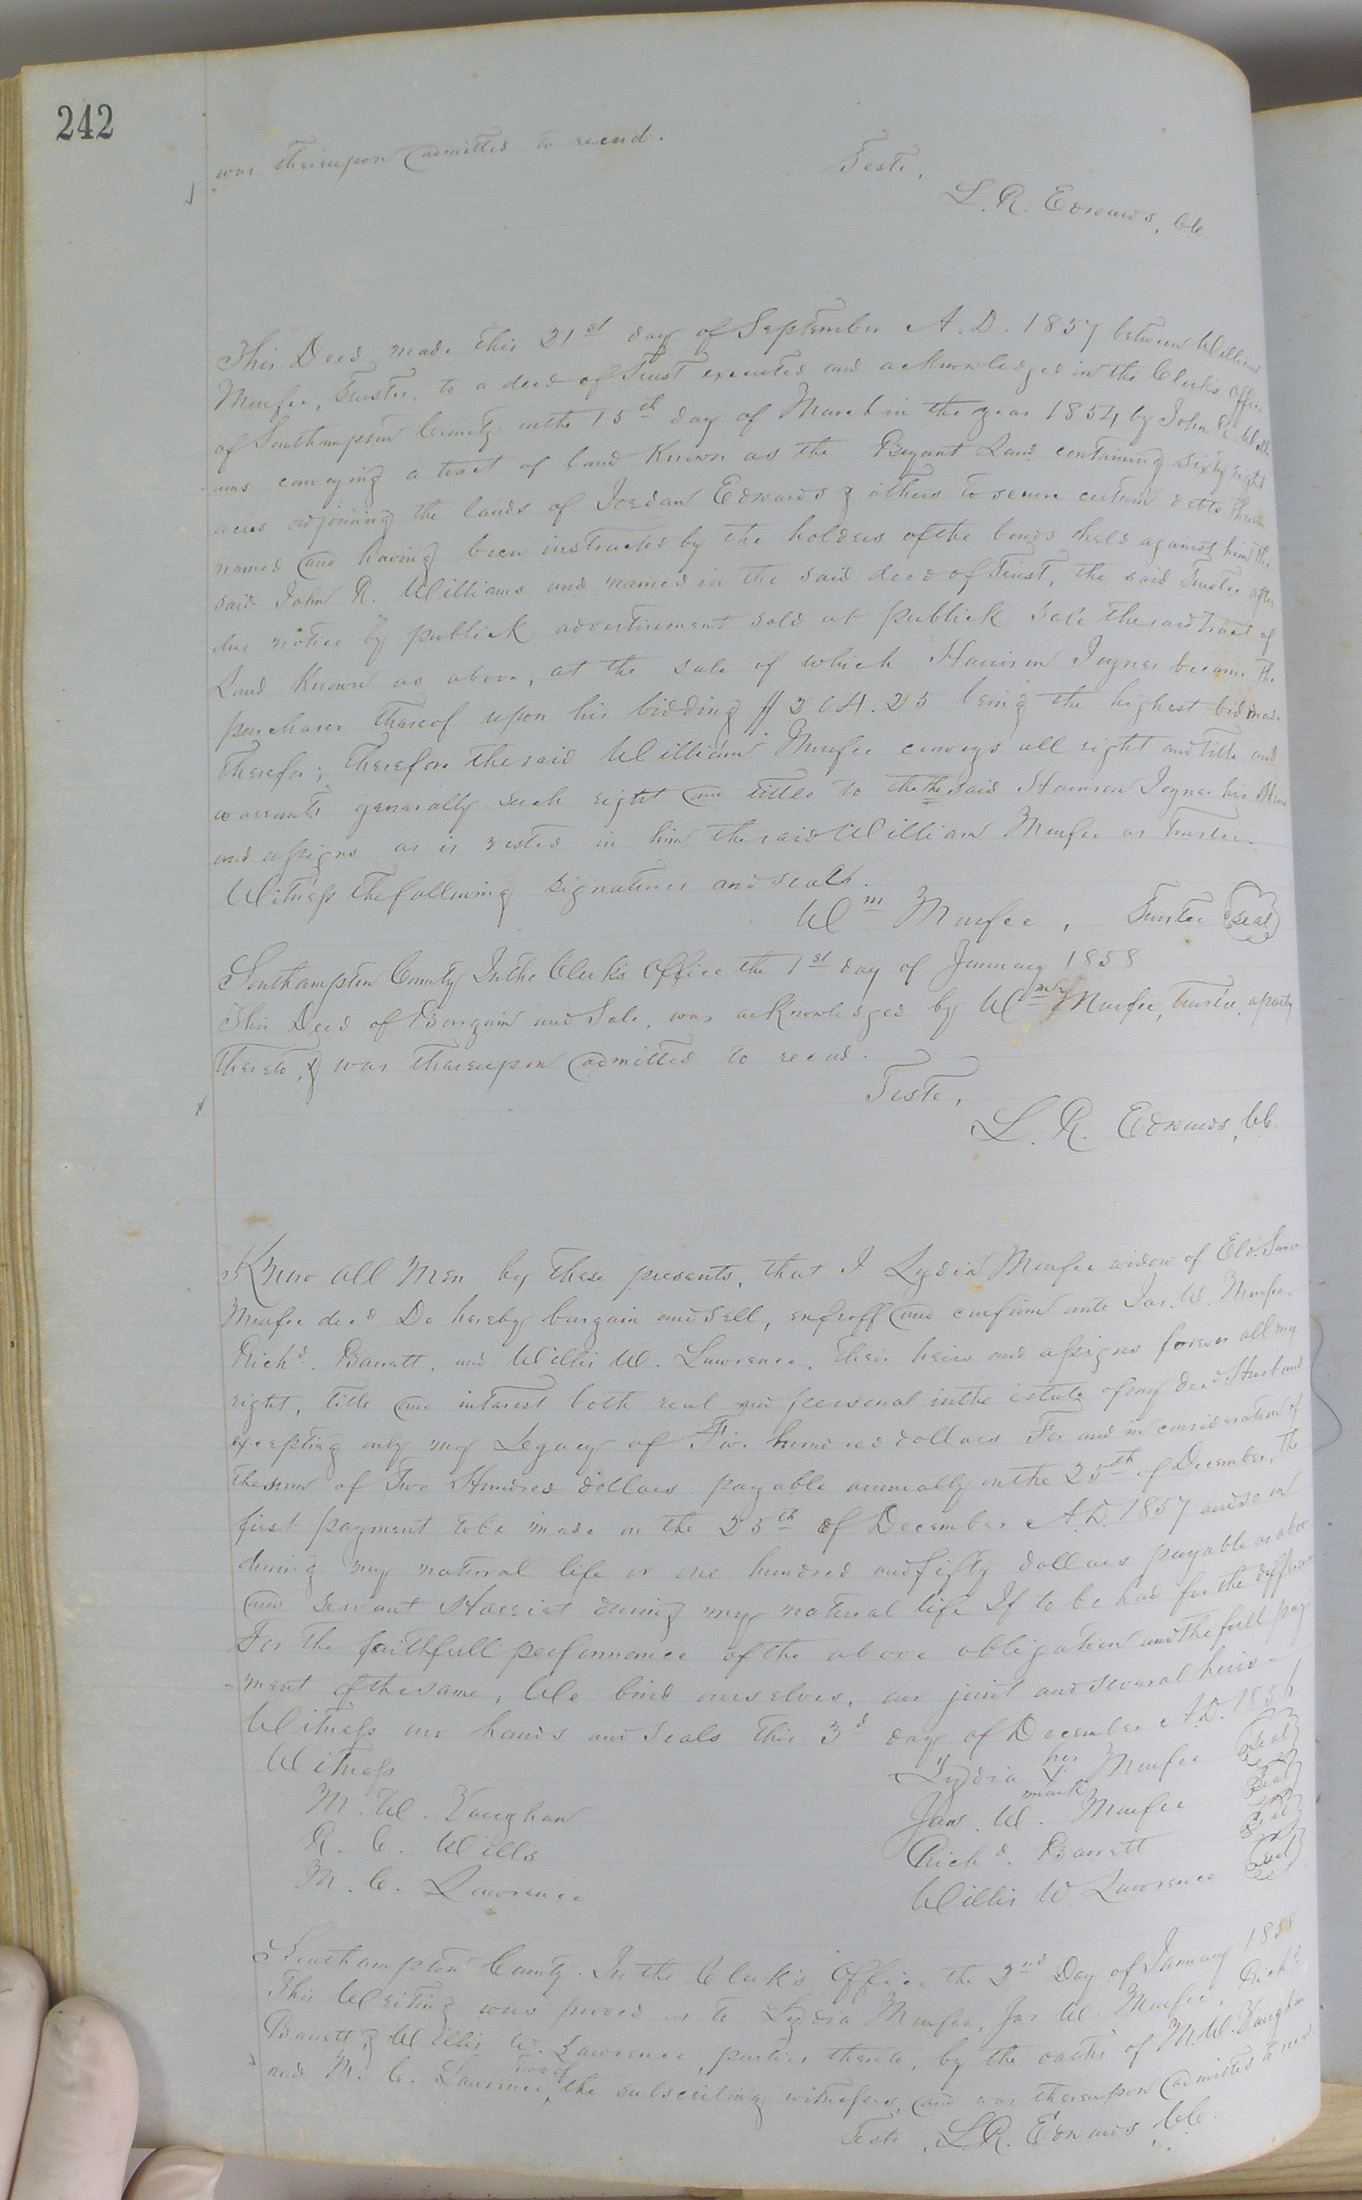 242
was thereupon admitted to record.
Teste,
L. R. Edwards, CC.
This Deed made this 21st day of September A. D. 1857 between William
Murfee, Trustee, to a deed of Trust executed and acknowledged in the Clerks Office
of Southampton County on the 15th day of March in the year 1854 by John R. Willi
-ams conveying a tract of land Known as the Bryant Land containing sixty eight
acres adjoining the lands of Jordan Edwards & others to secure certain debts therein
named and having been instructed by the holders of the bonds held against him the
said John R. Williams and named in the said deed of Trust, the said Trustee after
due notice by publick advertisement sold at publick sale the said tract of
Land Known as above, at the sale of which Harrison Joyner became the
purchaser thereof upon his bidding $264.25 being the highest bid made
therefor; Therefore the said William Murfee conveys all right and title and
warrants generally such right and title to the the said Harrison Joyner his Heirs
and assigns as is vested in him the said William Murfee as Trustee.
Witness the following signatures and seals.
Wm Murfee, Trustee (seal)
Southampton County In the Clerk's Office the 1st day of January 1858
This Deed of Bargain and Sale, was acknowledged by Wm Murfee, Trustee, a party
thereto, & was thereupon admitted to record.
Teste,
L. R. Edwards, CC.
Know all Men by these presents, that I Lydia Murfee widow of Eld.
Murfee decd Do hereby bargain and sell, enfeoff and confirm unto Jas. W. Murfee,
Richd. Barrett, and Willis W. Lawrence, their heirs and assigns forever all my
right, title and interest both real and personal in the estate of my decd Husband
excepting only my Legacy of Five hundred dollars For and in consideration of
the sum of Two Hundred dollars payable annually on the 25th of December, the
first payment to be made on the 25th of December A.D. 1857 and so on
during my natural life or one hundred and fifty dollars payable as above
and servant Harriet during my natural life If to be had for the difference
For the faithfull performance of the above obligation and the full pay-
-ment of the same, We bind ourselves, our joint and several heirs -
Witness our hands and seals this 3d day of December A.D. 1856
Witness
Lydia her X mark Murfee (seal)
M. W. Vaughan
Jas. W. Murfee (seal)
R. C. Wills
Richd. Barrett (seal)
M. C. Lawrence
Willis W Lawrence (seal)
Southampton County. In the Clerk's Office the 2nd Day of January 1858
This Writing was proved as to Lydia Murfee, Jas W. Murfee, Richd
Barrett, & Willis W. Lawrence, parties thereto, by the oaths of M. W. Vaughan
and M. C. Lawrence, two of the subscribing witnesses, and was thereupon admitted to record
Teste, L. R. Edwards, CC.